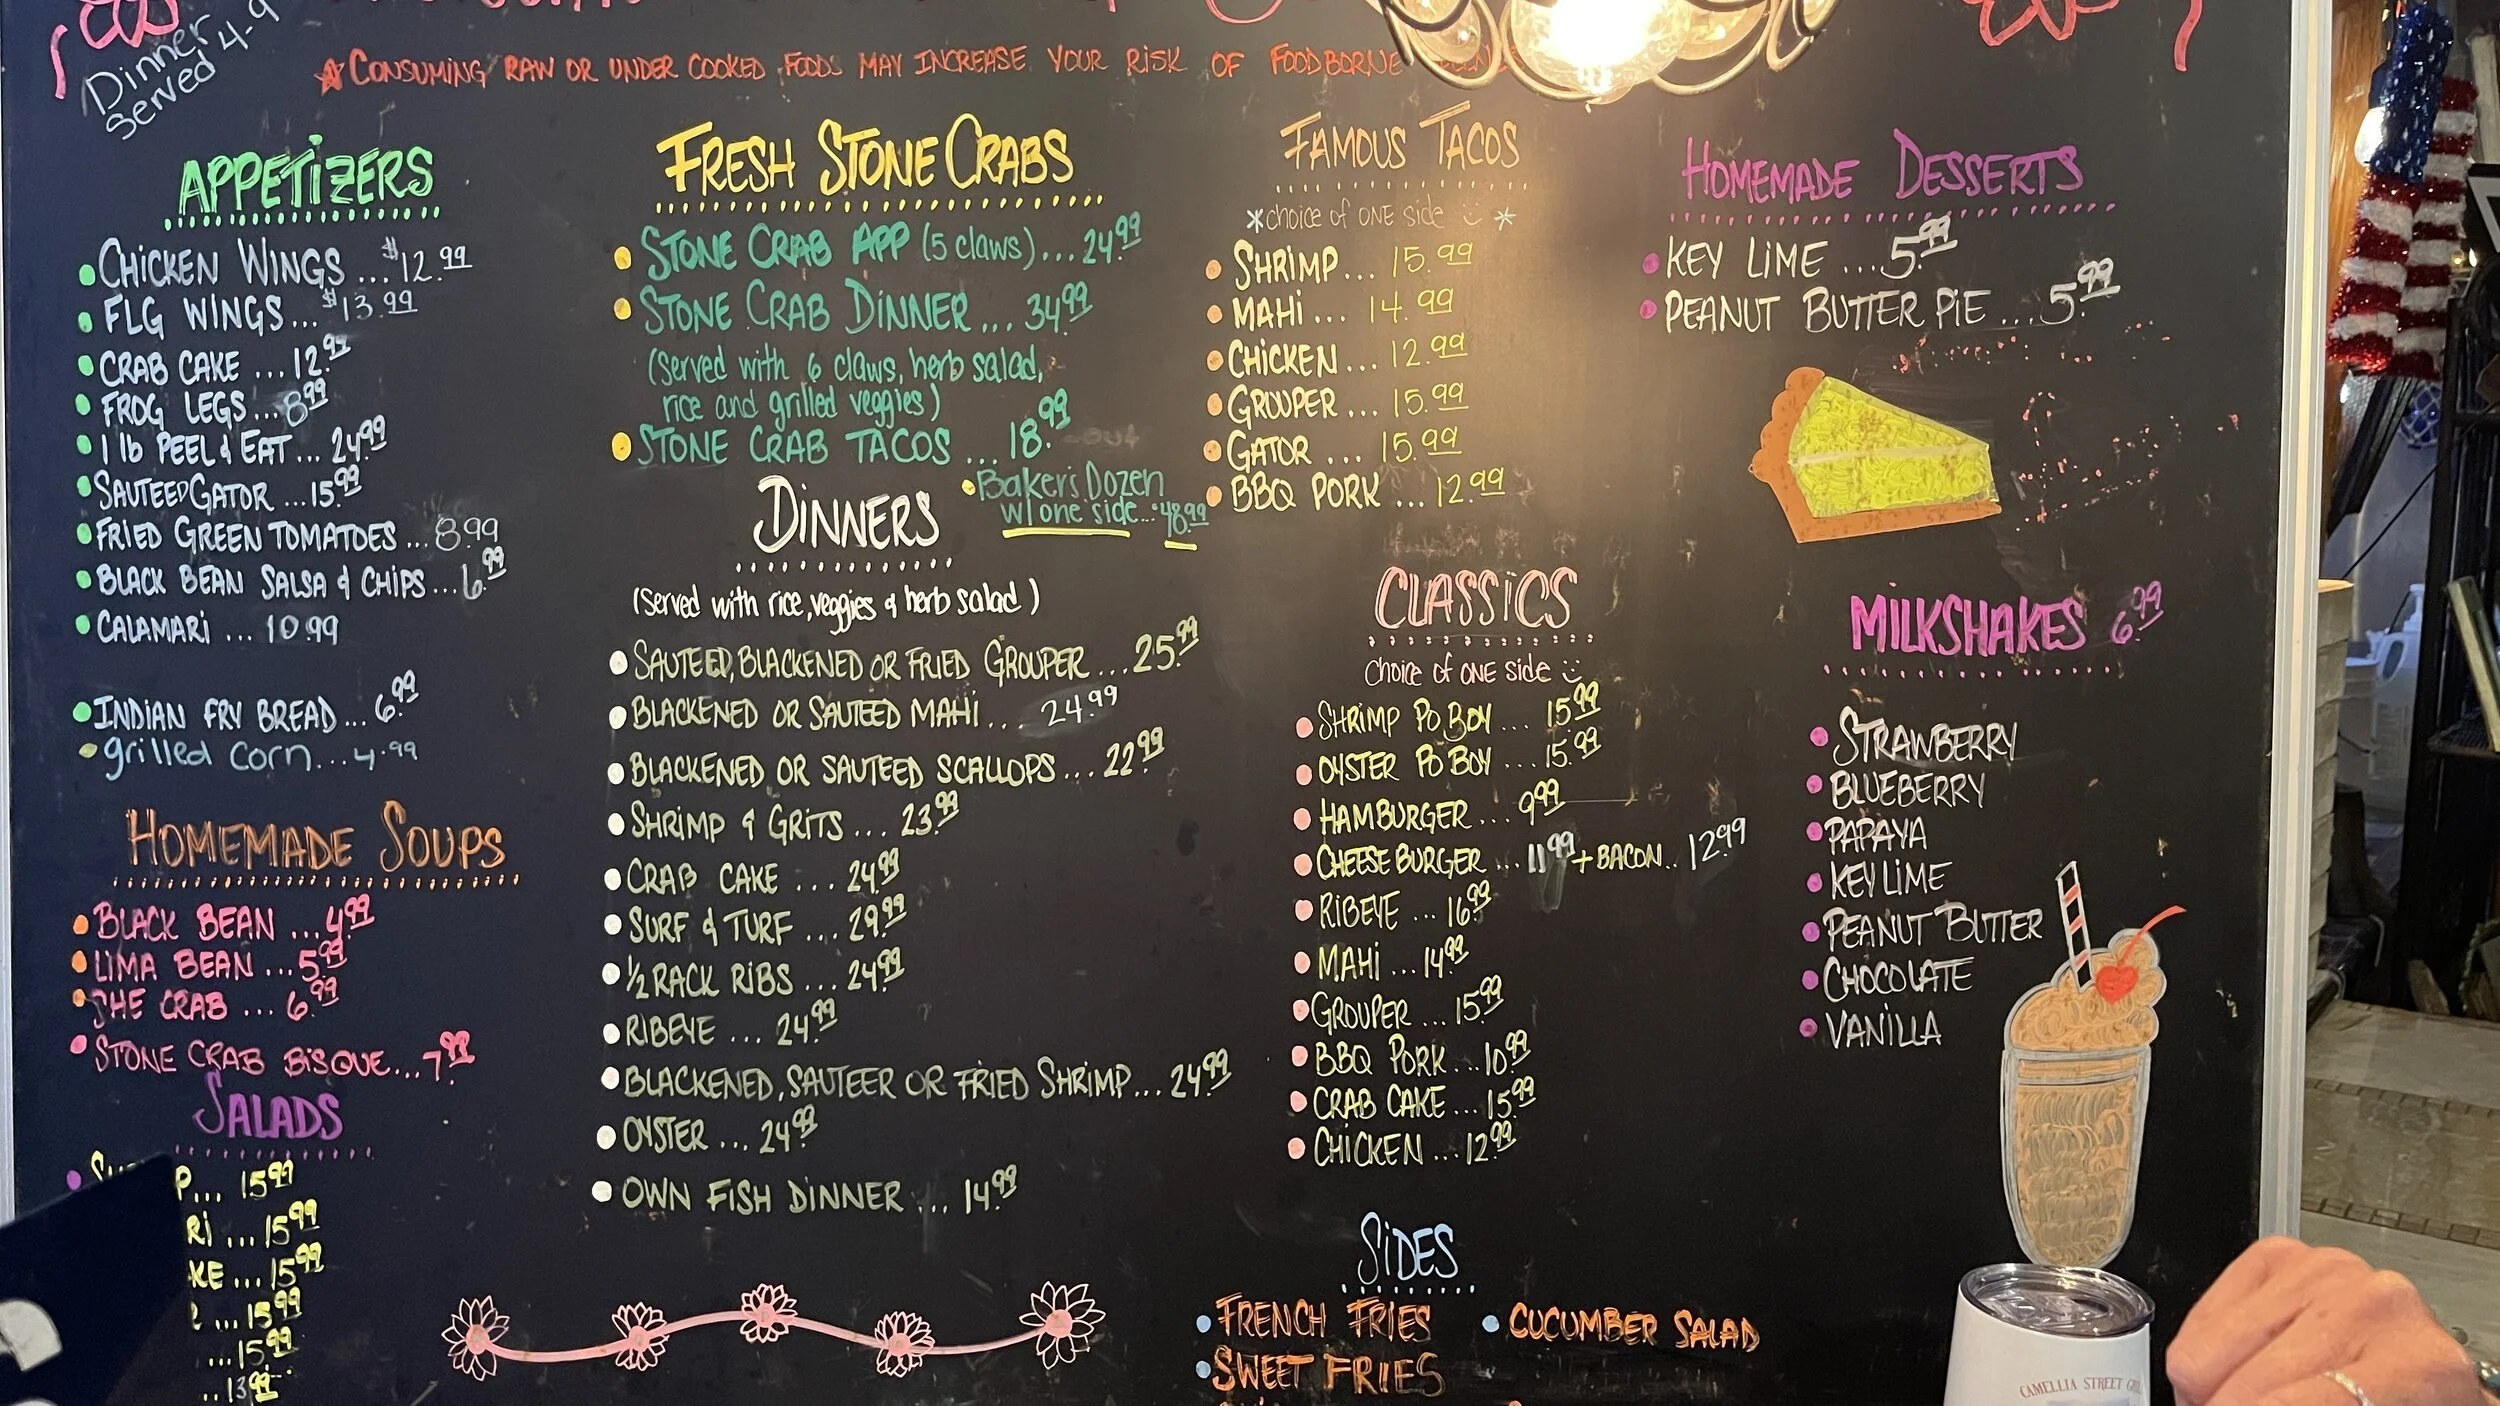 Dinner
Served 4-9
CONSUMING RAW OR UNDER COOKED FOODS MAY INCREASE YOUR RISK OF FOODBORNE
APPETIZERS
CHICKEN WINGS ... $12.99
FLG WINGS... $13.99
CRAB CAKE ... 12.99
FROG LEGS ... 8.99
1 lb PEEL & EAT ... 24.99
SAUTEED GATOR ... 15.99
FRIED GREEN TOMATOES ... 8.99
BLACK BEAN SALSA & CHIPS ... 6.99
CALAMARI ... 10.99
INDIAN FRY BREAD ... 6.99
grilled corn... 4.99
HOMEMADE SOUPS
BLACK BEAN ... 4.99
LIMA BEAN ... 5.99
SHE CRAB ... 6.99
STONE CRAB BISQUE... 7.99
SALADS
P... 15.99
RI ... 15.99
KE ... 15.99
... 15.99
... 15.99
.. 13.99
FRESH STONE CRABS
STONE CRAB APP (5 claws)... 24.99
STONE CRAB DINNER ... 34.99
(Served with 6 claws, herb salad,
rice and grilled veggies)
STONE CRAB TACOS ... 18.99
Bakers Dozen
w/ one side... 48.99
DINNERS
(Served with rice, veggies & herb salad)
SAUTEED, BLACKENED OR FRIED GROUPER ... 25.99
BLACKENED OR SAUTEED MAHI... 24.99
BLACKENED OR SAUTEED SCALLOPS ... 22.99
SHRIMP & GRITS ... 23.99
CRAB CAKE ... 24.99
SURF & TURF ... 29.99
1/2 RACK RIBS ... 24.99
RIBEYE ... 24.99
BLACKENED, SAUTEER OR FRIED SHRIMP... 24.99
OYSTER ... 24.99
OWN FISH DINNER ... 14.99
FAMOUS TACOS
*choice of ONE side *
SHRIMP... 15.99
MAHI ... 14.99
CHICKEN ... 12.99
GROUPER ... 15.99
GATOR ... 15.99
BBQ PORK ... 12.99
CLASSICS
choice of ONE side
SHRIMP PO BOY ... 15.99
OYSTER PO BOY .... 15.99
HAMBURGER ... 9.99
CHEESE BURGER ... 11.99 + BACON.. 12.99
RIBEYE ... 16.99
MAHI ... 14.99
GROUPER ... 15.99
BBQ PORK ... 10.99
CRAB CAKE ... 15.99
CHICKEN ... 12.99
SIDES
FRENCH FRIES
CUCUMBER SALAD
SWEET FRIES
HOMEMADE DESSERTS
KEY LIME ... 5.99
PEANUT BUTTER PIE ... 5.99
MILKSHAKES 6.99
STRAWBERRY
BLUEBERRY
PAPAYA
KEY LIME
PEANUT BUTTER
CHOCOLATE
VANILLA
CAMELLIA STREET